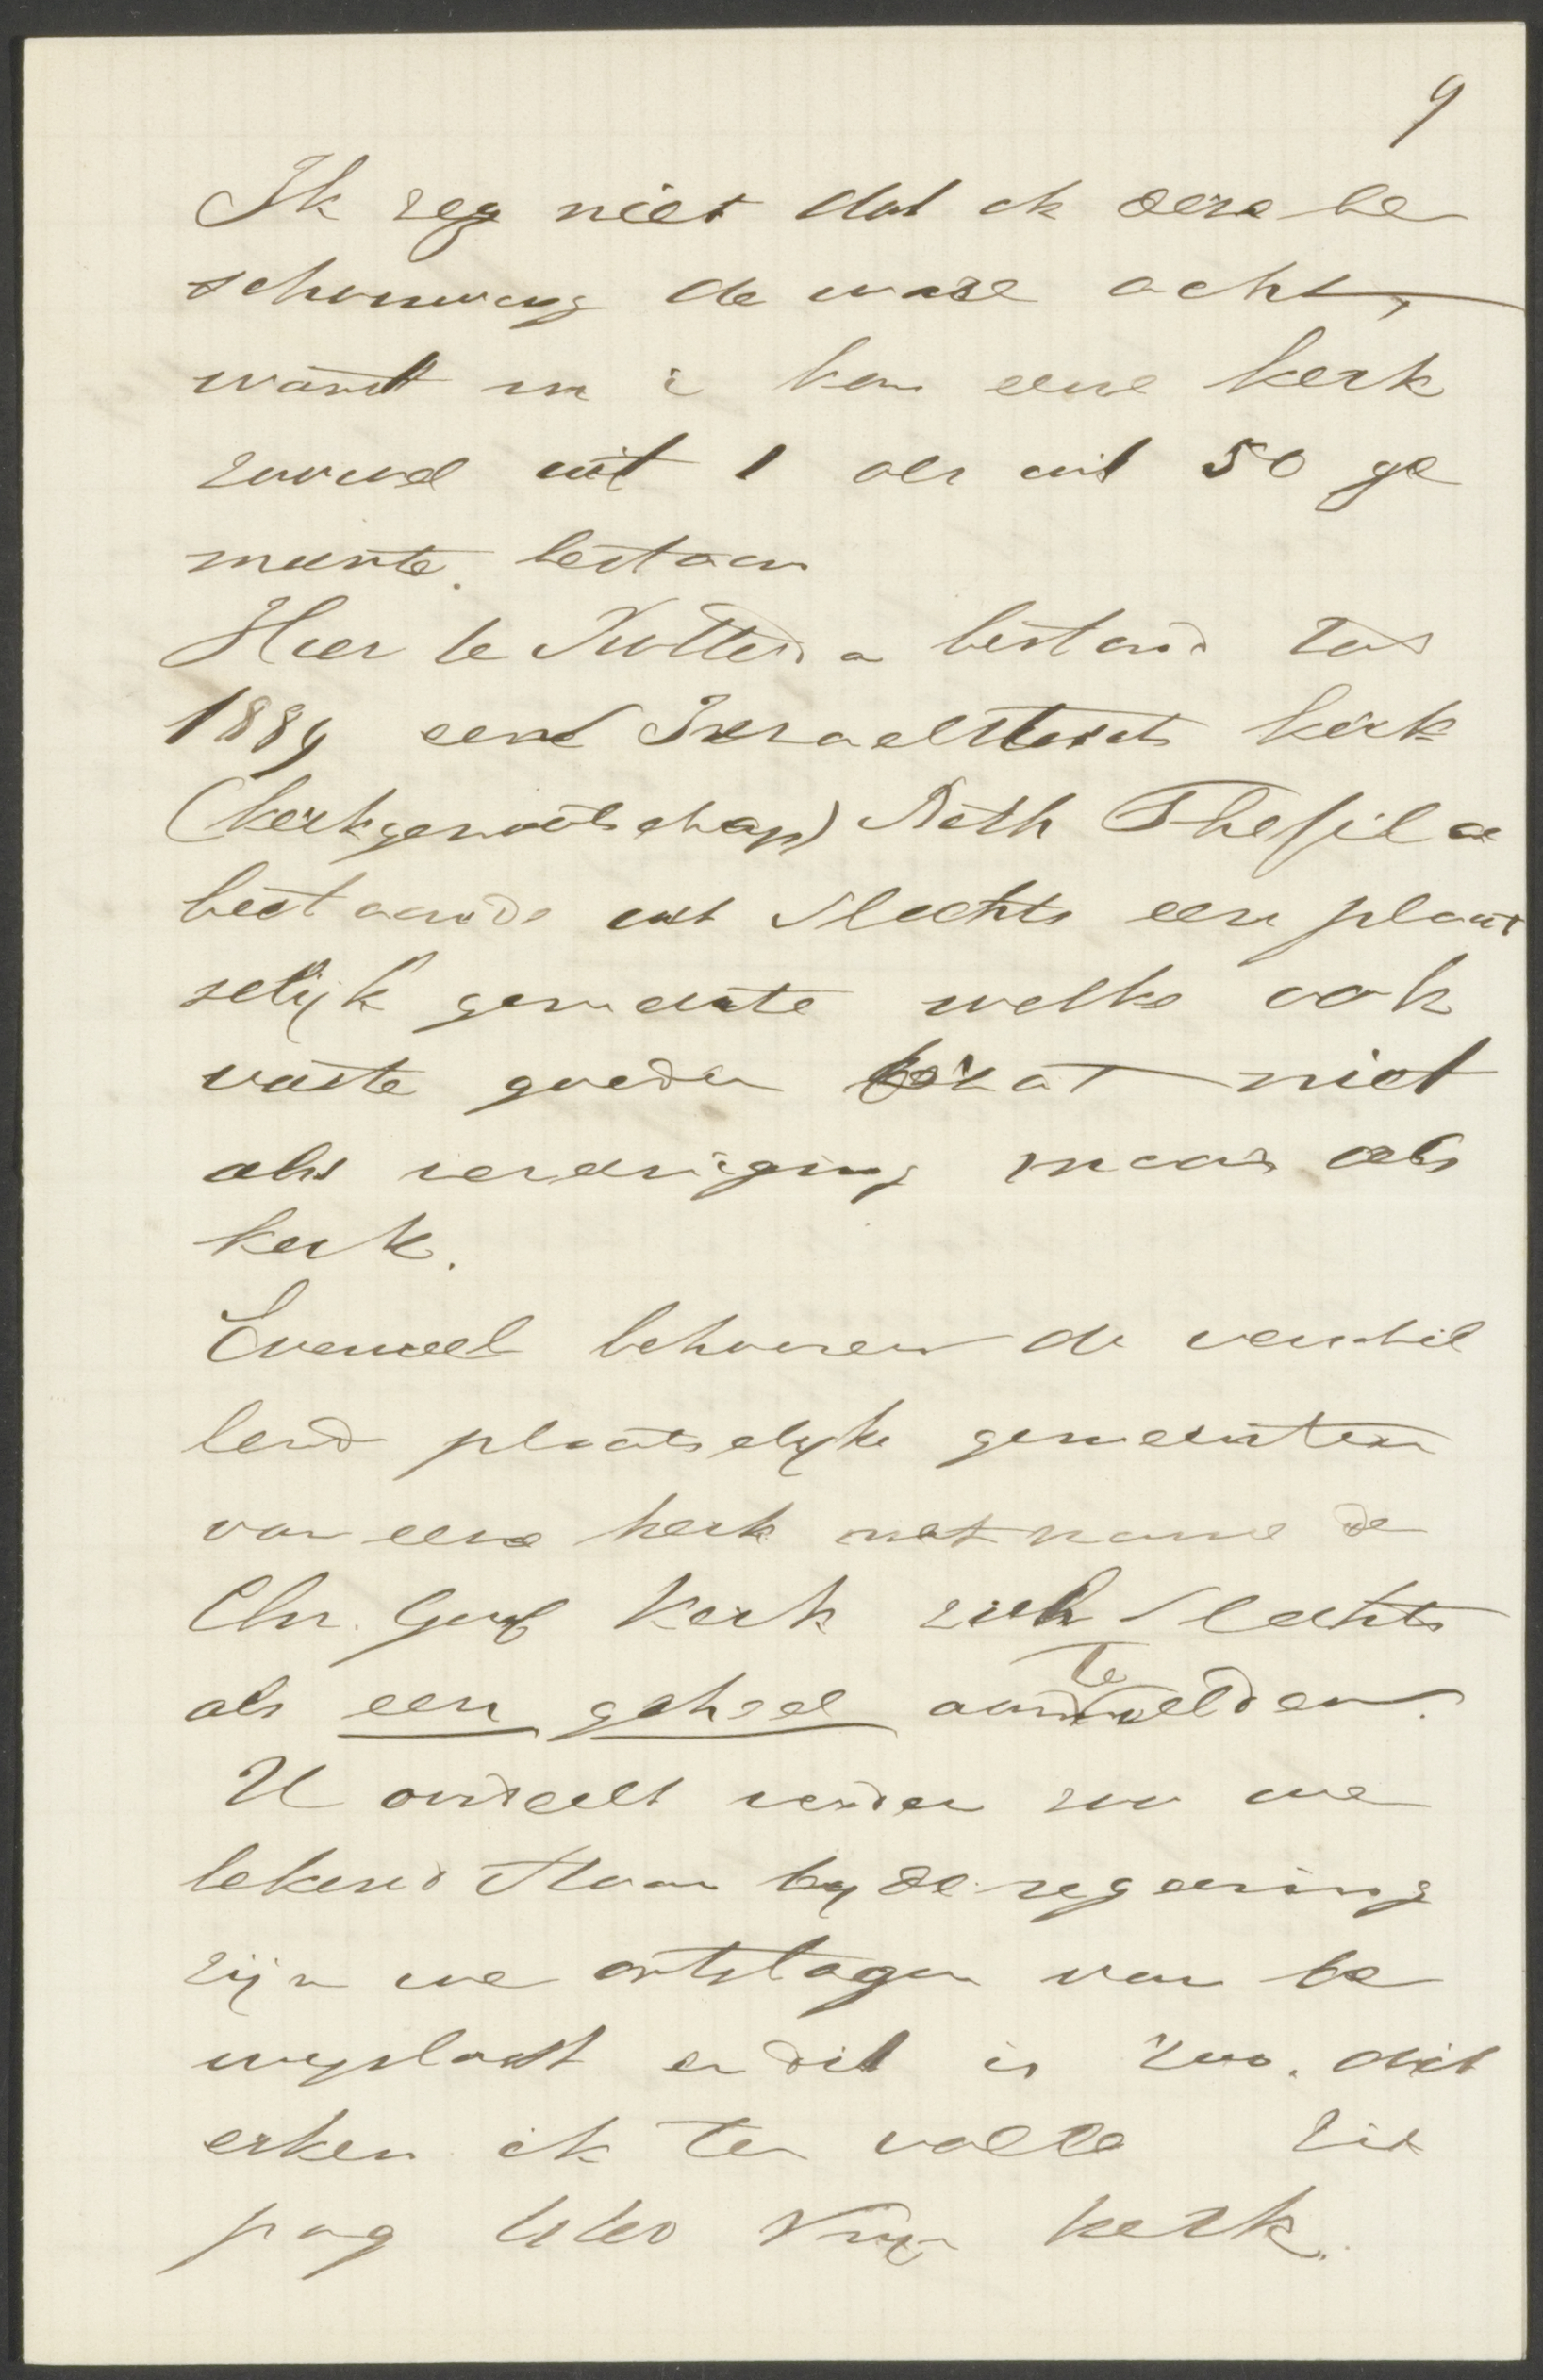 9
Ik zeg niet dat ik deze be
schouwing de ware acht,
want m i kan eene kerk
zoowel uit 1 als uit 50 ge
meente. bestaan
Hier te Rotterd a bestond tot
1889 eene Israelitische kerk
(kerkgenootschap) Beth Thefila
bestaande uit slechts een plaat
selijk gemeente welke ook
vaste goeden bezat niet
als vereeniging maar als
kerk.
Evenwel behooren de verschil
lend plaatselijke gemeenten
van eene kerk met name de
Chr. Geref Kerk zich slechts
als een geheel aan te melden.
U oordeelt verder zoo we
bekend staan bij de regeering
zijn we ontslagen van be
wijslast en dit is zoo. dit
erken ik ten volle zie
pag Vrije kerk.